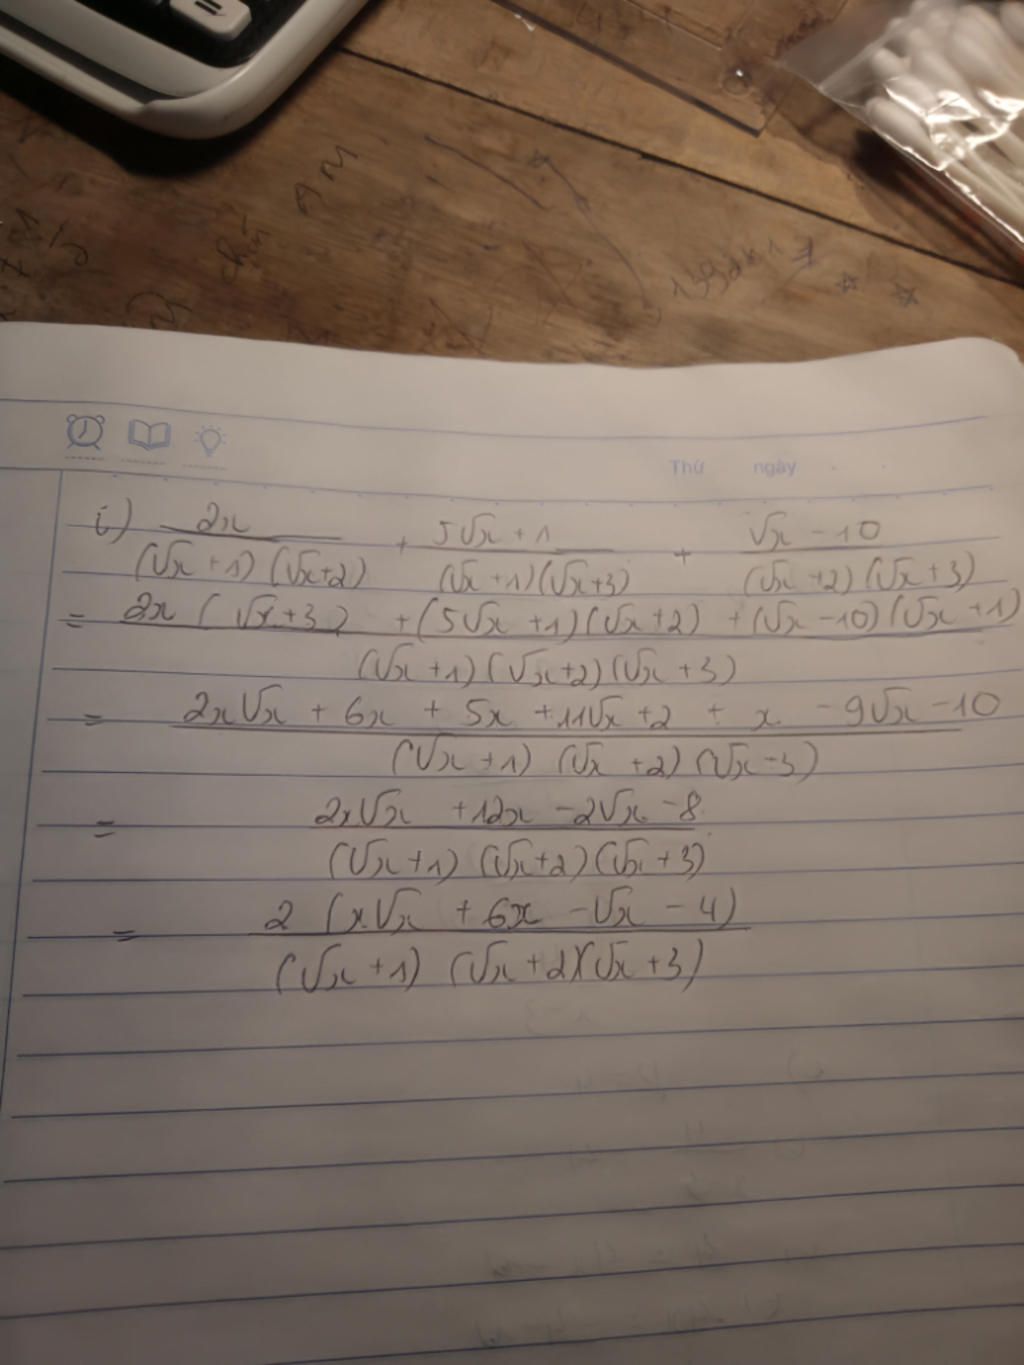 =
AM
chú
Thứ ngày
i) 2x/((√x + 1)(√x+2)) + (5√x + 1)/((√x + 1)(√x+3)) + (√x - 10)/((√x +2)(√x + 3))
= (2x(√x+3) + (5√x +1)(√x+2) + (√x -10)(√x +1))/((√x +1)(√x+2)(√x +3))
= (2x√x + 6x + 5x +11√x +2 + x - 9√x -10)/((√x +1)(√x +2)(√x-3))
= (2x√x +12x -2√x -8)/((√x +1)(√x+2)(√x +3))
= 2(x√x + 6x -√x - 4)/((√x +1)(√x +2)(√x +3))